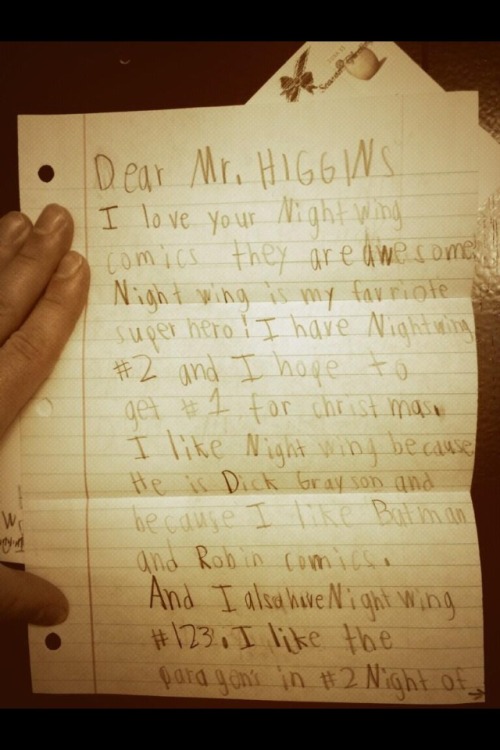 Season's
Dear Mr. HIGGINS
I love your Nightwing
comics they are awesome
Night wing is my favriote
super hero! I have Nightwing
#2 and I hope to
get #1 for christmas.
I like Night wing because
He is Dick Grayson and
because I like Batman
and Robin comics.
And I also have Night wing
#123. I like the
paragons in #2 Night of →